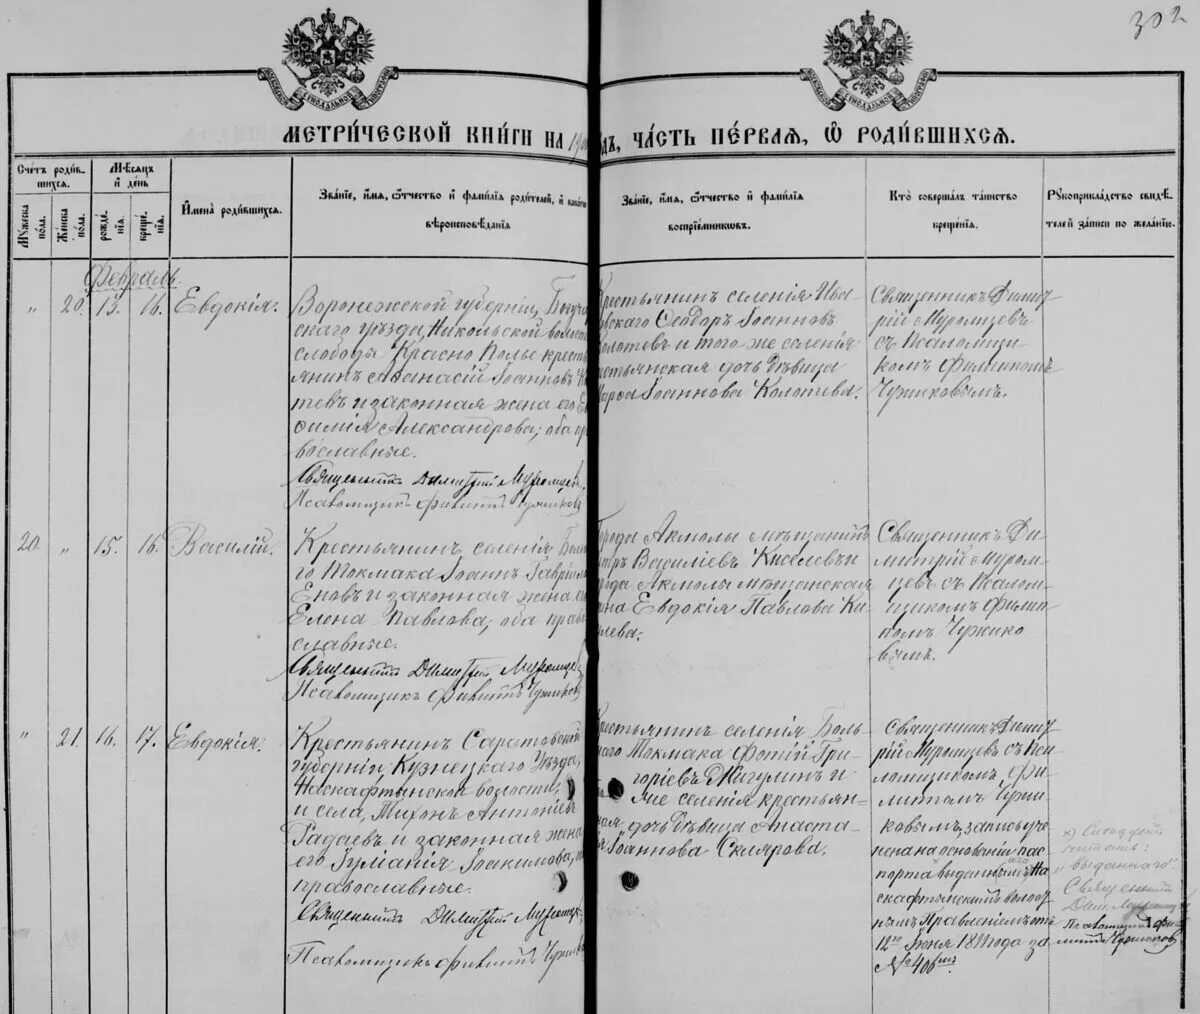 302
МЕТРИ́ЧЕСКОЙ КНИ́ГИ НА 19 ДЪ, ЧА́СТЬ ПЕ́РВАЯ, Ѡ РОДИ́ВШИХСЯ.
Сче́тъ роди́в-
шихся.
Мѣсяцъ
и де́нь
Му́жеска
по́ла.
Же́нска
по́ла.
рожде́-
нія.
креще́-
нія.
Имена̀ роди́вшихся.
Зва́ніе, и́мя, ѻ́тчество и фами́лія роди́телей, и како́го
вѣроисповѣ́данія
Зва́ніе, и́мя, ѻ́тчество и фами́лія
воспріе́мниковъ.
Кто̀ соверша́лъ та́инство
креще́нія.
Рукоприкла́дство свидѣ́-
телей за́писи по жела́нію.
Февраль.
" 20. 13. 16. Евдокія.
Воронежской губерніи, Богуча
скаго уѣзда, Никольской волост
слободы Красно Полье кресть
янинъ Аѳанасій Іоанновъ К
тевъ и законная жена его Ев
ѳимія Александрова; оба пр
вославные.
Священникъ Димитрій Муромцев
Псаломщик Филиппъ Чужиков
Крестьянинъ селенія Ива
овскаго Ѳеодоръ Іоанновъ
Колотевъ и того же селенія
естьянская дочь дѣвица
Іоаннова Колотева.
Священникъ Дими-
рій Муромцевъ
съ Псаломщи-
комъ Филиппомъ
Чужиковымъ.
20. " 15. 16. Василій.
Крестьянинъ селенія Боль
го Токмака Іоаннъ Гавріил
Еновъ и законная жена е
Елена Павлова; оба прав
славные.
Священникъ Димитрій Муромце
Псаломщикъ Филиппъ Чужиков
Города Акмолы мѣщанинъ
тръ Василіевъ Киселевъ и
рода Акмолы мѣщанская
Евдокія Павлова Ки-
лева.
Священникъ Ди-
митрій Муром-
цевъ съ Псалом-
щикомъ Филип-
помъ Чужико-
вымъ.
" 21. 16. 17. Евдокія.
Крестьянинъ Саратовской
губерніи Кузнецкаго Уѣзда,
Наскафтымской волости,
и села, Тихонъ Антоніев
Радаевъ и законная жена
его Іуліанія Іоакимова,
православные.
Священникъ Димитрій Муромцев
Псаломщикъ Филиппъ Чужик
Крестьянинъ селенія Боль
аго Токмака Фотій Гри-
горіевъ Мигулинъ и
же селенія крестьян-
ская дочь дѣвица Анаста-
Іоаннова Склярова.
Священникъ Дими-
рій Муромцевъ съ Пса-
ломщикомъ Фи-
липпомъ Чужи-
ковымъ, запись уче-
нена на основаніи пас-
порта выданнымъ На-
скафтымскимъ волост-
нымъ Правленіемъ отъ
12го Іюня года за
№ 406мъ
х) Слѣдуетъ
читать:
"выданнаго".
Священникъ
Дим. Муромц
Псаломщикъ Фи-
липпъ Чужиковъ